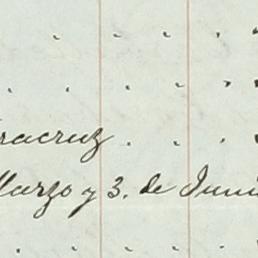 racruz . . .
Marzo y 3. de Juni